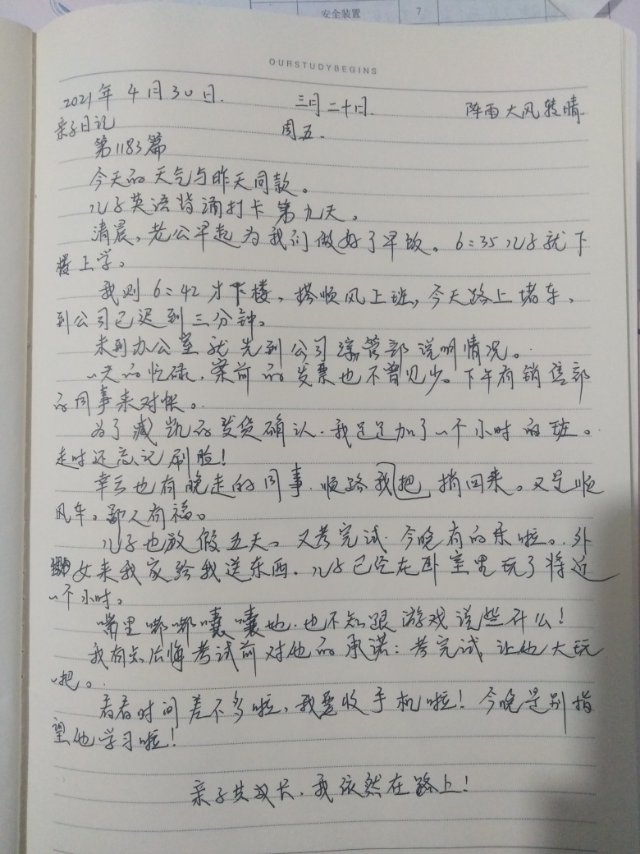 安全装置 7
OURSTUDYBEGINS
2021年4月30日. 三月二十日. 阵雨大风转晴
亲子日记 周五.
第1183篇
今天的天气与昨天同款。
儿子英语背诵打卡第九天。
清晨，老公早起为我们做好了早饭。6:35儿子就下
楼上学。
我则6:42才下楼，搭顺风上班，今天路上堵车，
到公司已迟到三分钟。
未到办公室就先到公司 部说明情况。
一天的忙碌，案前的发票也不曾见少。下午有销售部
的同事来对帐。
为了 的发货确认.我足足加了一个小时的班。
走时还忘记刷脸！
幸亏也有晚走的同事.顺路把我捎回来。又是顺
风车。 人有福。
儿子也放假五天。又考完试.今晚有的乐啦。外
女来我家给我送东西.儿子已经在卧室里玩了将近
一个小时。
嘴里嘟嘟囔囔地.也不知跟游戏说些什么！
我有点后悔考试前对他的承诺：考完试让他大玩
一把。
看看时间差不多啦，我要收手机啦！今晚是别指
望他学习啦！
亲子共成长.我依然在路上！